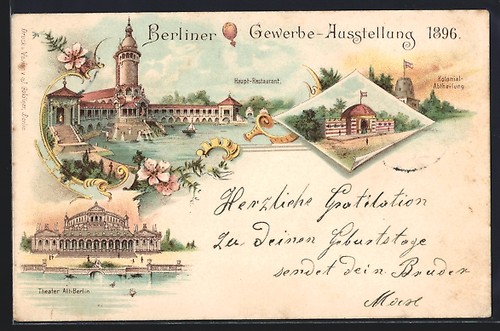 Berliner Gewerbe-Ausstellung 1896.
Haupt-Restaurant.
Kolonial-
Abtheilung.
Herzliche Gratilation
Zu Deinen Geburtstage
sendet dein Bruder
Theater Alt-Berlin